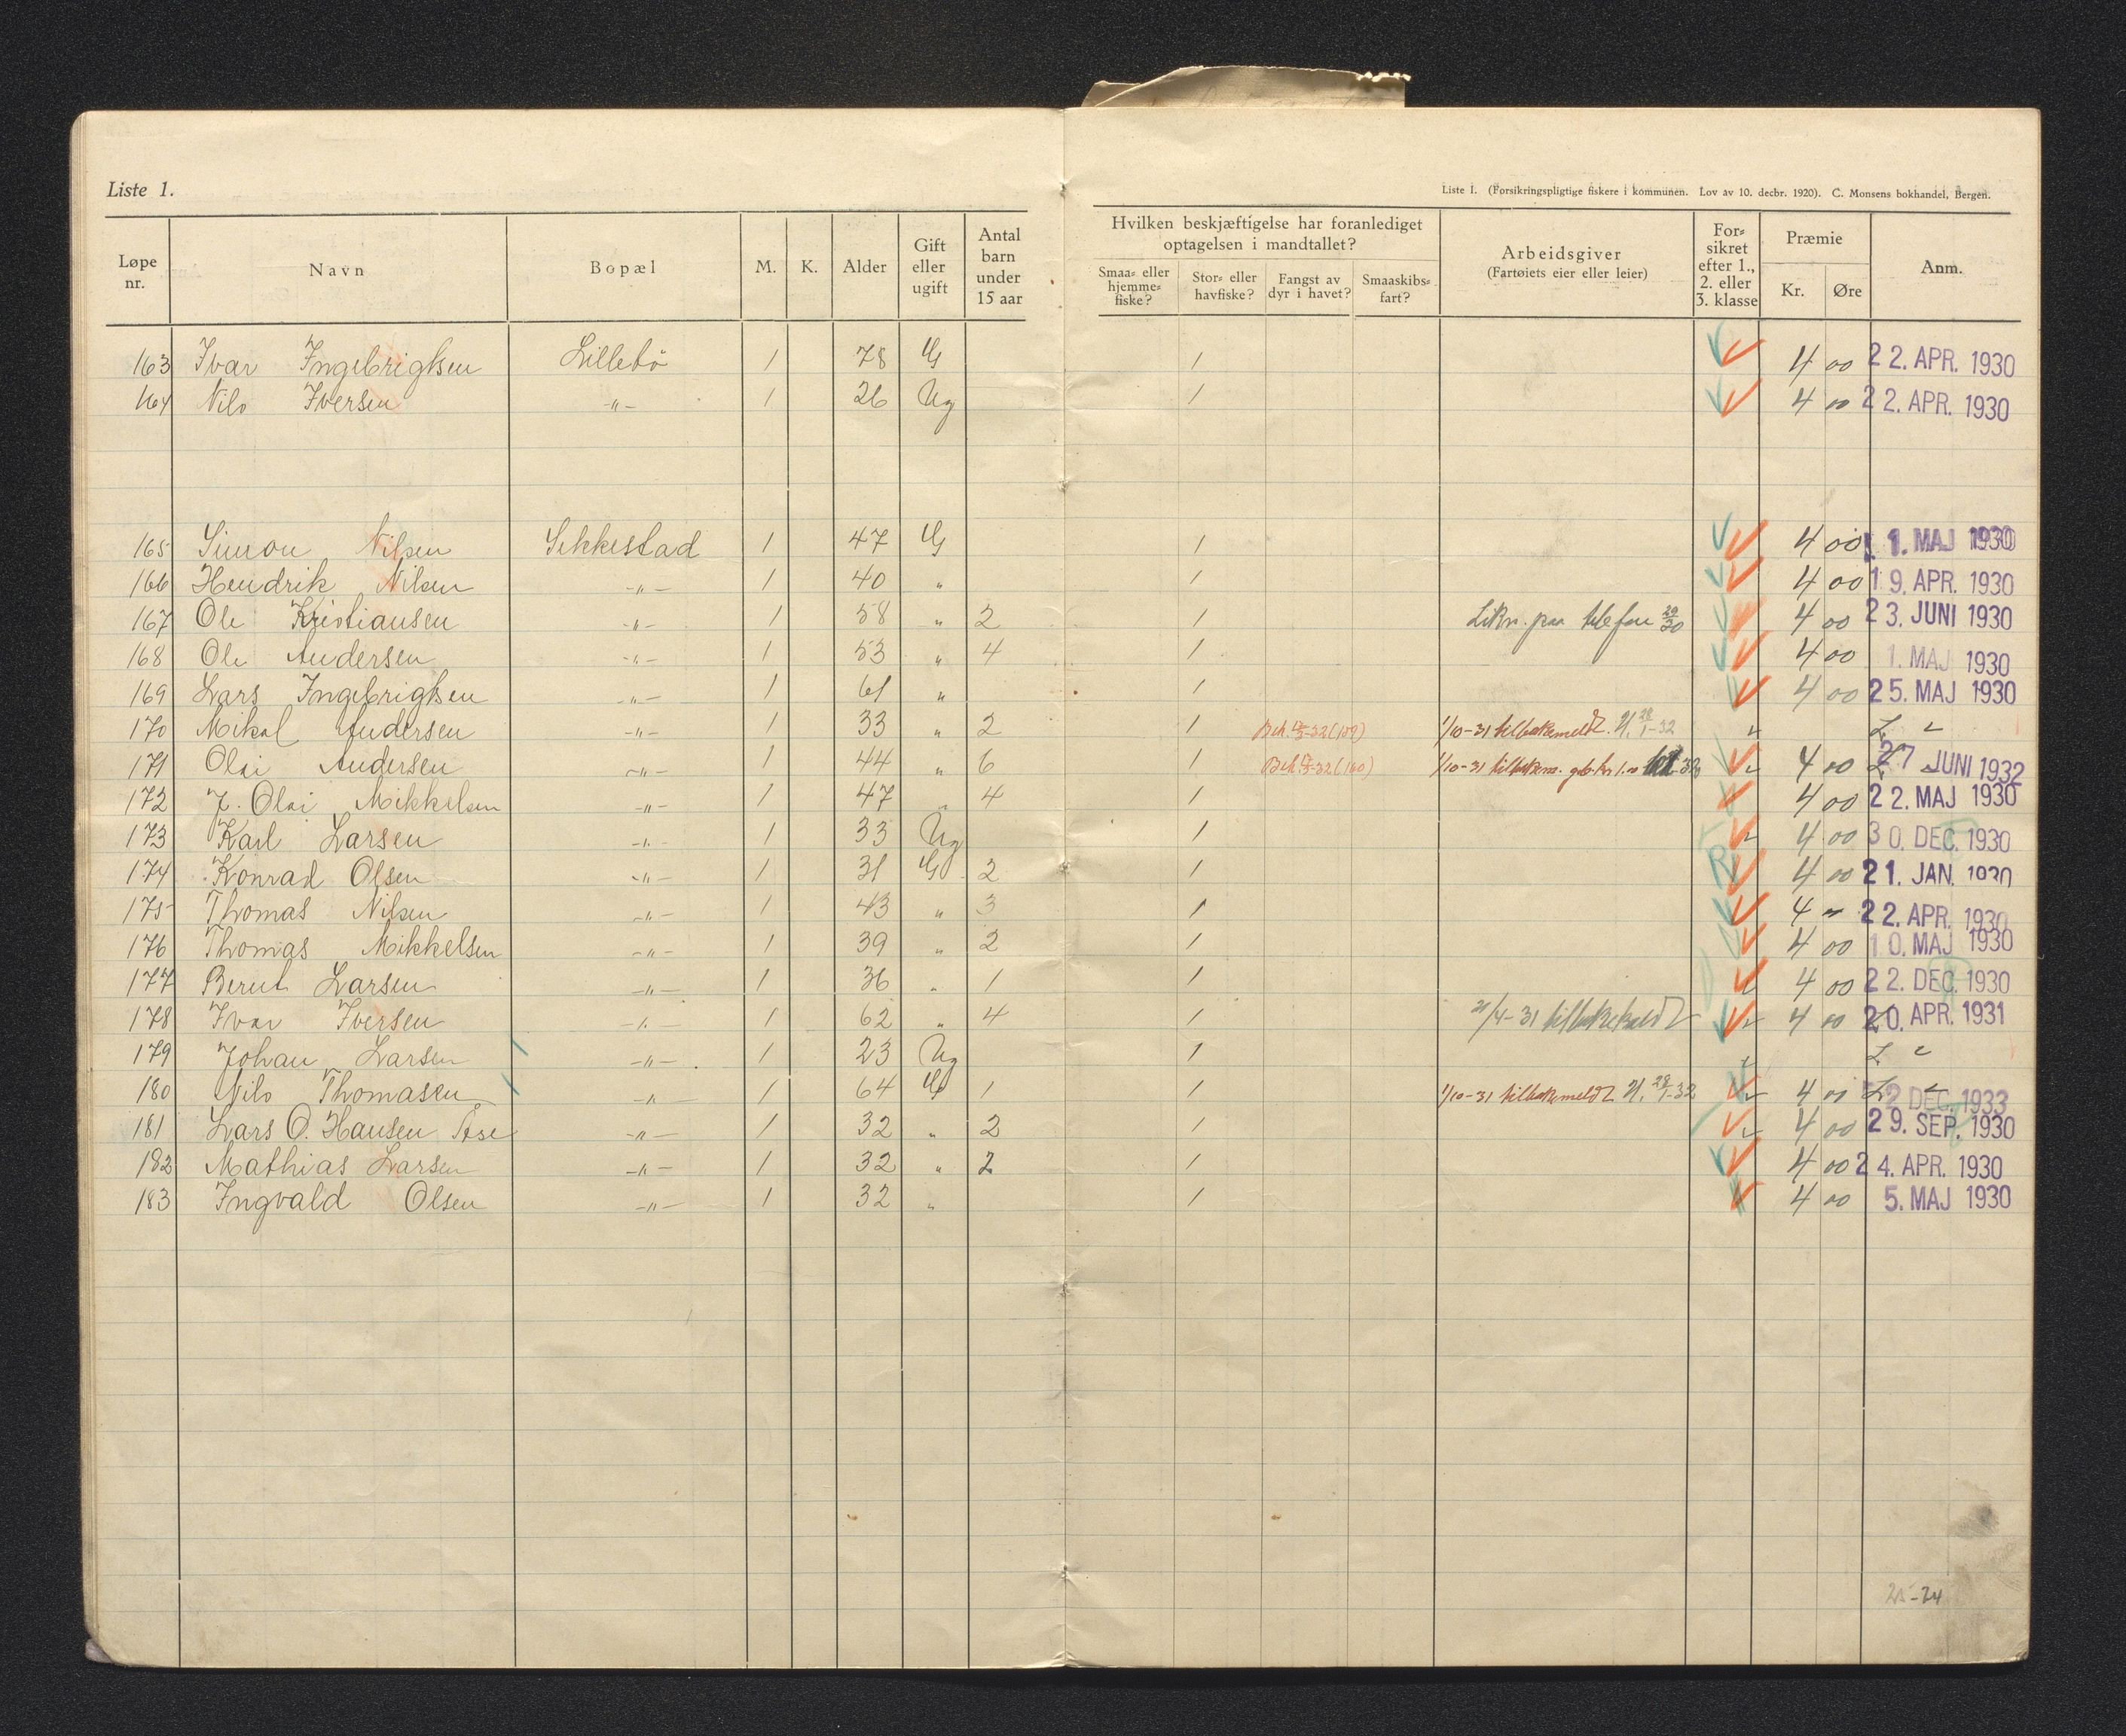 Liste 1.
Liste 1. (Forsikringspligtige fiskere i kommunen. Lov av 10. decbr. 1920). C. Monsens bokhandel, Bergen.
Løpe nr. Navn Bopæl M. K. Alder Gift eller ugift Antal barn under 15 aar
Hvilken beskjæftigelse har foranlediget optagelsen i mandtallet?
Smaa- eller hjemmefiske? Stor- eller havfiske? Fangst av dyr i havet? Smaaskibsfart?
Arbeidsgiver (Fartøiets eier eller leier) Forsikret efter 1., 2. eller 3. klasse Præmie Kr. Øre Anm.
163 Ivar Ingebrigtsen Lillebö 1 78 G 1 4 00 22. APR. 1930
164 Nils Iversen -"- 1 26 Ug 1 4 00 22. APR. 1930
165 Simon Nilsen Sekkestad 1 47 G 1 4 00 1. MAJ 1930
166 Hendrik Nilsen -"- 1 40 " 1 4 00 19. APR. 1930
167 Ole Kristiansen -"- 1 58 " 2 1 4 00 23. JUNI 1930
168 Ole Andersen -"- 1 53 " 4 1 4 00 1. MAJ 1930
169 Lars Ingebrigtsen -"- 1 61 " 1 4 00 25. MAJ 1930
170 Mikal Andersen -"- 1 33 " 2 1 1/10-31 tilbakemeldt
171 Olai Andersen -"- 1 44 " 6 1 1/10-31 4 00 27 JUNI 1932
172 J. Olai Mikkelsen -"- 1 47 " 4 1 4 00 22. MAJ 1930
173 Karl Larsen -"- 1 33 Ug 1 4 00 30. DEC. 1930
174 Konrad Olsen -"- 1 31 G 2 1 R 4 00 21. JAN. 1930
175 Thomas Nilsen -"- 1 43 " 3 1 4 " 22. APR. 1930
176 Thomas Mikkelsen -"- 1 39 " 2 1 4 00 10. MAJ 1930
177 Berent Larsen -"- 1 36 " 1 1 4 00 22. DEC. 1930
178 Ivar Iversen -"- 1 62 " 4 1 4 00 20. APR. 1931
179 Johan Larsen -"- 1 23 Ug 1
180 Nils Thomasen -"- 1 64 G 1 1 1/10-31 tilbakemeldt 4 00 DEC. 1933
181 Lars O. Hansen Åse -"- 1 32 " 2 1 4 00 29. SEP. 1930
182 Mathias Larsen -"- 1 32 " 2 1 4 00 24. APR. 1930
183 Ingvald Olsen -"- 1 32 " 1 4 00 5. MAJ 1930